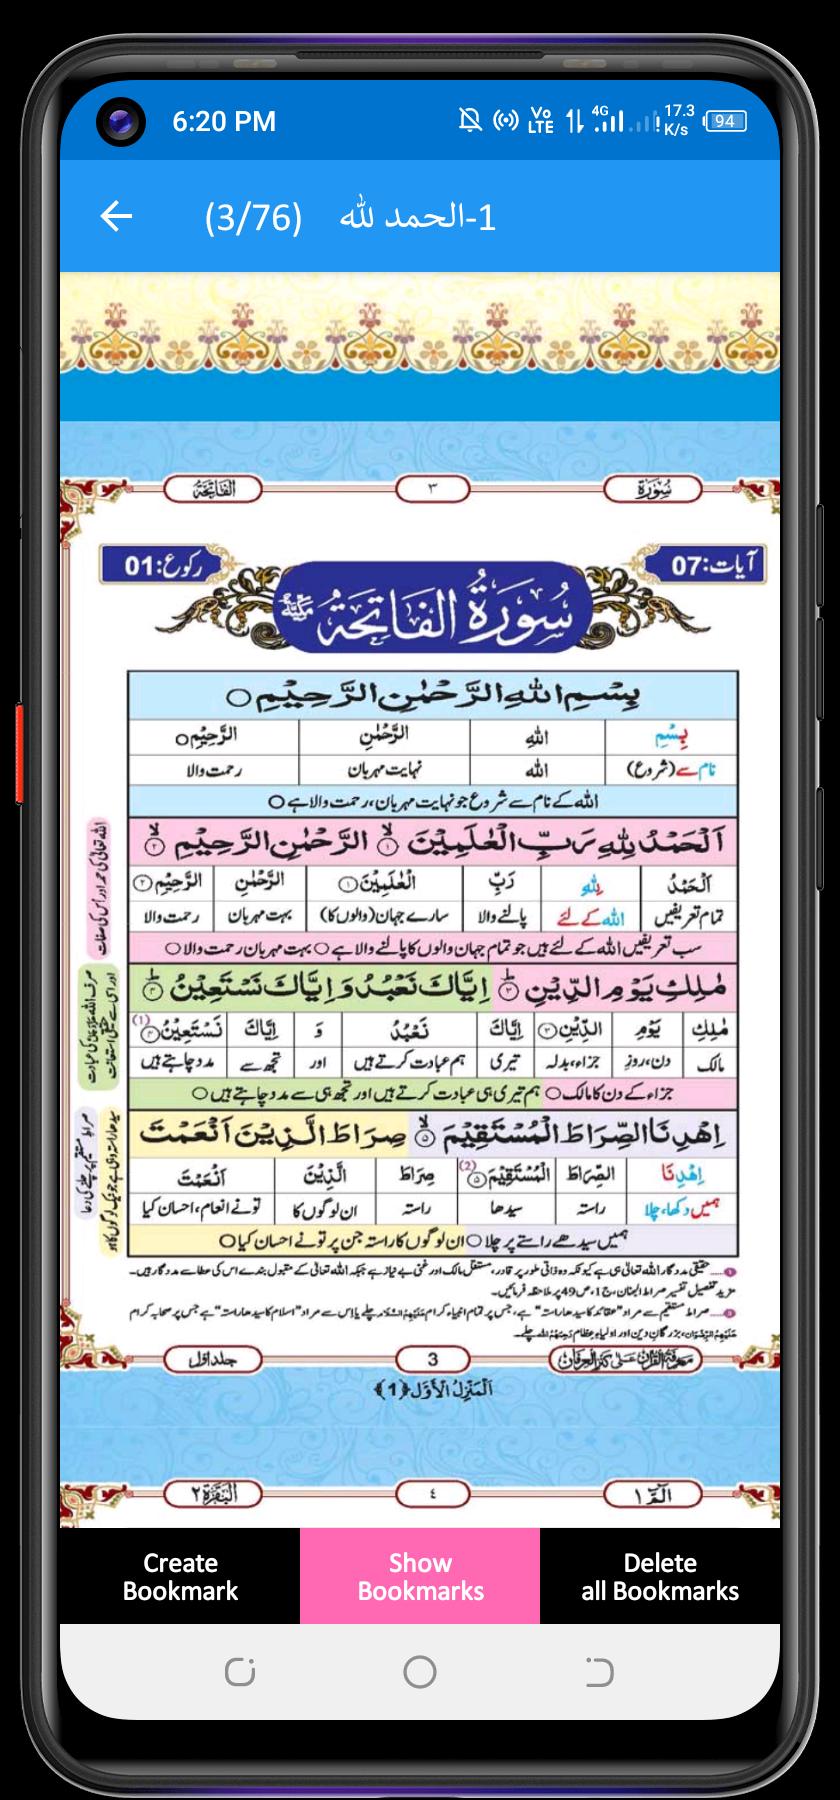 6:20 PM Vo LTE 4G 17.3 K/s 94
(3/76) 1-الحمد للہ
سُوْرَة ٣ الفَاتِحَة
آیات:07 رکوع:01
سُوْرَةُ الفَاتِحَةُ مَكِّيَّةٌ
بِسْمِ اللهِ الرَّحْمٰنِ الرَّحِيْمِ ○
بِسْمِ اللهِ الرَّحْمٰنِ الرَّحِيْمِ○
نام سے (شروع) اللہ نہایت مہربان رحمت والا
اللہ کے نام سے شروع جو نہایت مہربان، رحمت والا ہے ○
اَلْحَمْدُ لِلّٰهِ رَبِّ الْعٰلَمِيْنَ ۙ﴿۱﴾ الرَّحْمٰنِ الرَّحِيْمِ ۙ﴿۲﴾
اَلْحَمْدُ لِلّٰهِ رَبِّ الْعٰلَمِيْنَ ﴿۱﴾ الرَّحْمٰنِ الرَّحِيْمِ ﴿۲﴾
تمام تعریفیں اللہ کے لئے پالنے والا سارے جہان (والوں کا) بہت مہربان رحمت والا
سب تعریفیں اللہ کے لئے ہیں جو تمام جہان والوں کا پالنے والا ہے ○ بہت مہربان رحمت والا ○
اللہ تعالیٰ کی حمد اور اس کی صفات
مٰلِكِ يَوْمِ الدِّيْنِ ﴿۳﴾ اِيَّاكَ نَعْبُدُ وَ اِيَّاكَ نَسْتَعِيْنُ ﴿۴﴾
مٰلِكِ يَوْمِ الدِّيْنِ ﴿۳﴾ اِيَّاكَ نَعْبُدُ وَ اِيَّاكَ نَسْتَعِيْنُ ﴿۴﴾ (1)
مالک دن، روز جزاء، بدلہ تیری ہم عبادت کرتے ہیں اور تجھ سے مدد چاہتے ہیں
جزاء کے دن کا مالک ○ ہم تیری ہی عبادت کرتے ہیں اور تجھ ہی سے مدد چاہتے ہیں ○
اِهْدِنَا الصِّرَاطَ الْمُسْتَقِيْمَ ۙ﴿۵﴾ صِرَاطَ الَّذِيْنَ اَنْعَمْتَ
اِهْدِنَا الصِّرَاطَ الْمُسْتَقِيْمَ ﴿۵﴾ (2) صِرَاطَ الَّذِيْنَ اَنْعَمْتَ
ہمیں دکھا، چلا راستہ سیدھا راستہ ان لوگوں کا تونے انعام، احسان کیا
ہمیں سیدھے راستے پر چلا ○ ان لوگوں کا راستہ جن پر تونے احسان کیا ○
حقیقی مددگار اللہ تعالیٰ ہی ہے کیونکہ وہ ذاتی طور پر قادر، مستقل مالک اور غنی بے نیاز ہے جبکہ اللہ تعالیٰ کے مقبول بندے اس کی عطا سے مددگار ہیں۔
مزید تفصیل تفسیر صراط الجنان، ج1، ص49 پر ملاحظہ فرمائیں۔
صراط مستقیم سے مراد "عقائد کا سیدھا راستہ" ہے، جس پر تمام انبیاء کرام چلے یا اس سے مراد "اسلام کا سیدھا راستہ" ہے جس پر صحابہ کرام
بزرگانِ دین اور اولیاءِ عظام چلے۔
معرفة القرآن علی کنز العرفان 3 جلد اول
اَلْمَنْزِلُ الْاَوَّل ﴿1﴾
الٓمّٓ ١ ٤ البَقَرَة ٢
Create Bookmark
Show Bookmarks
Delete all Bookmarks